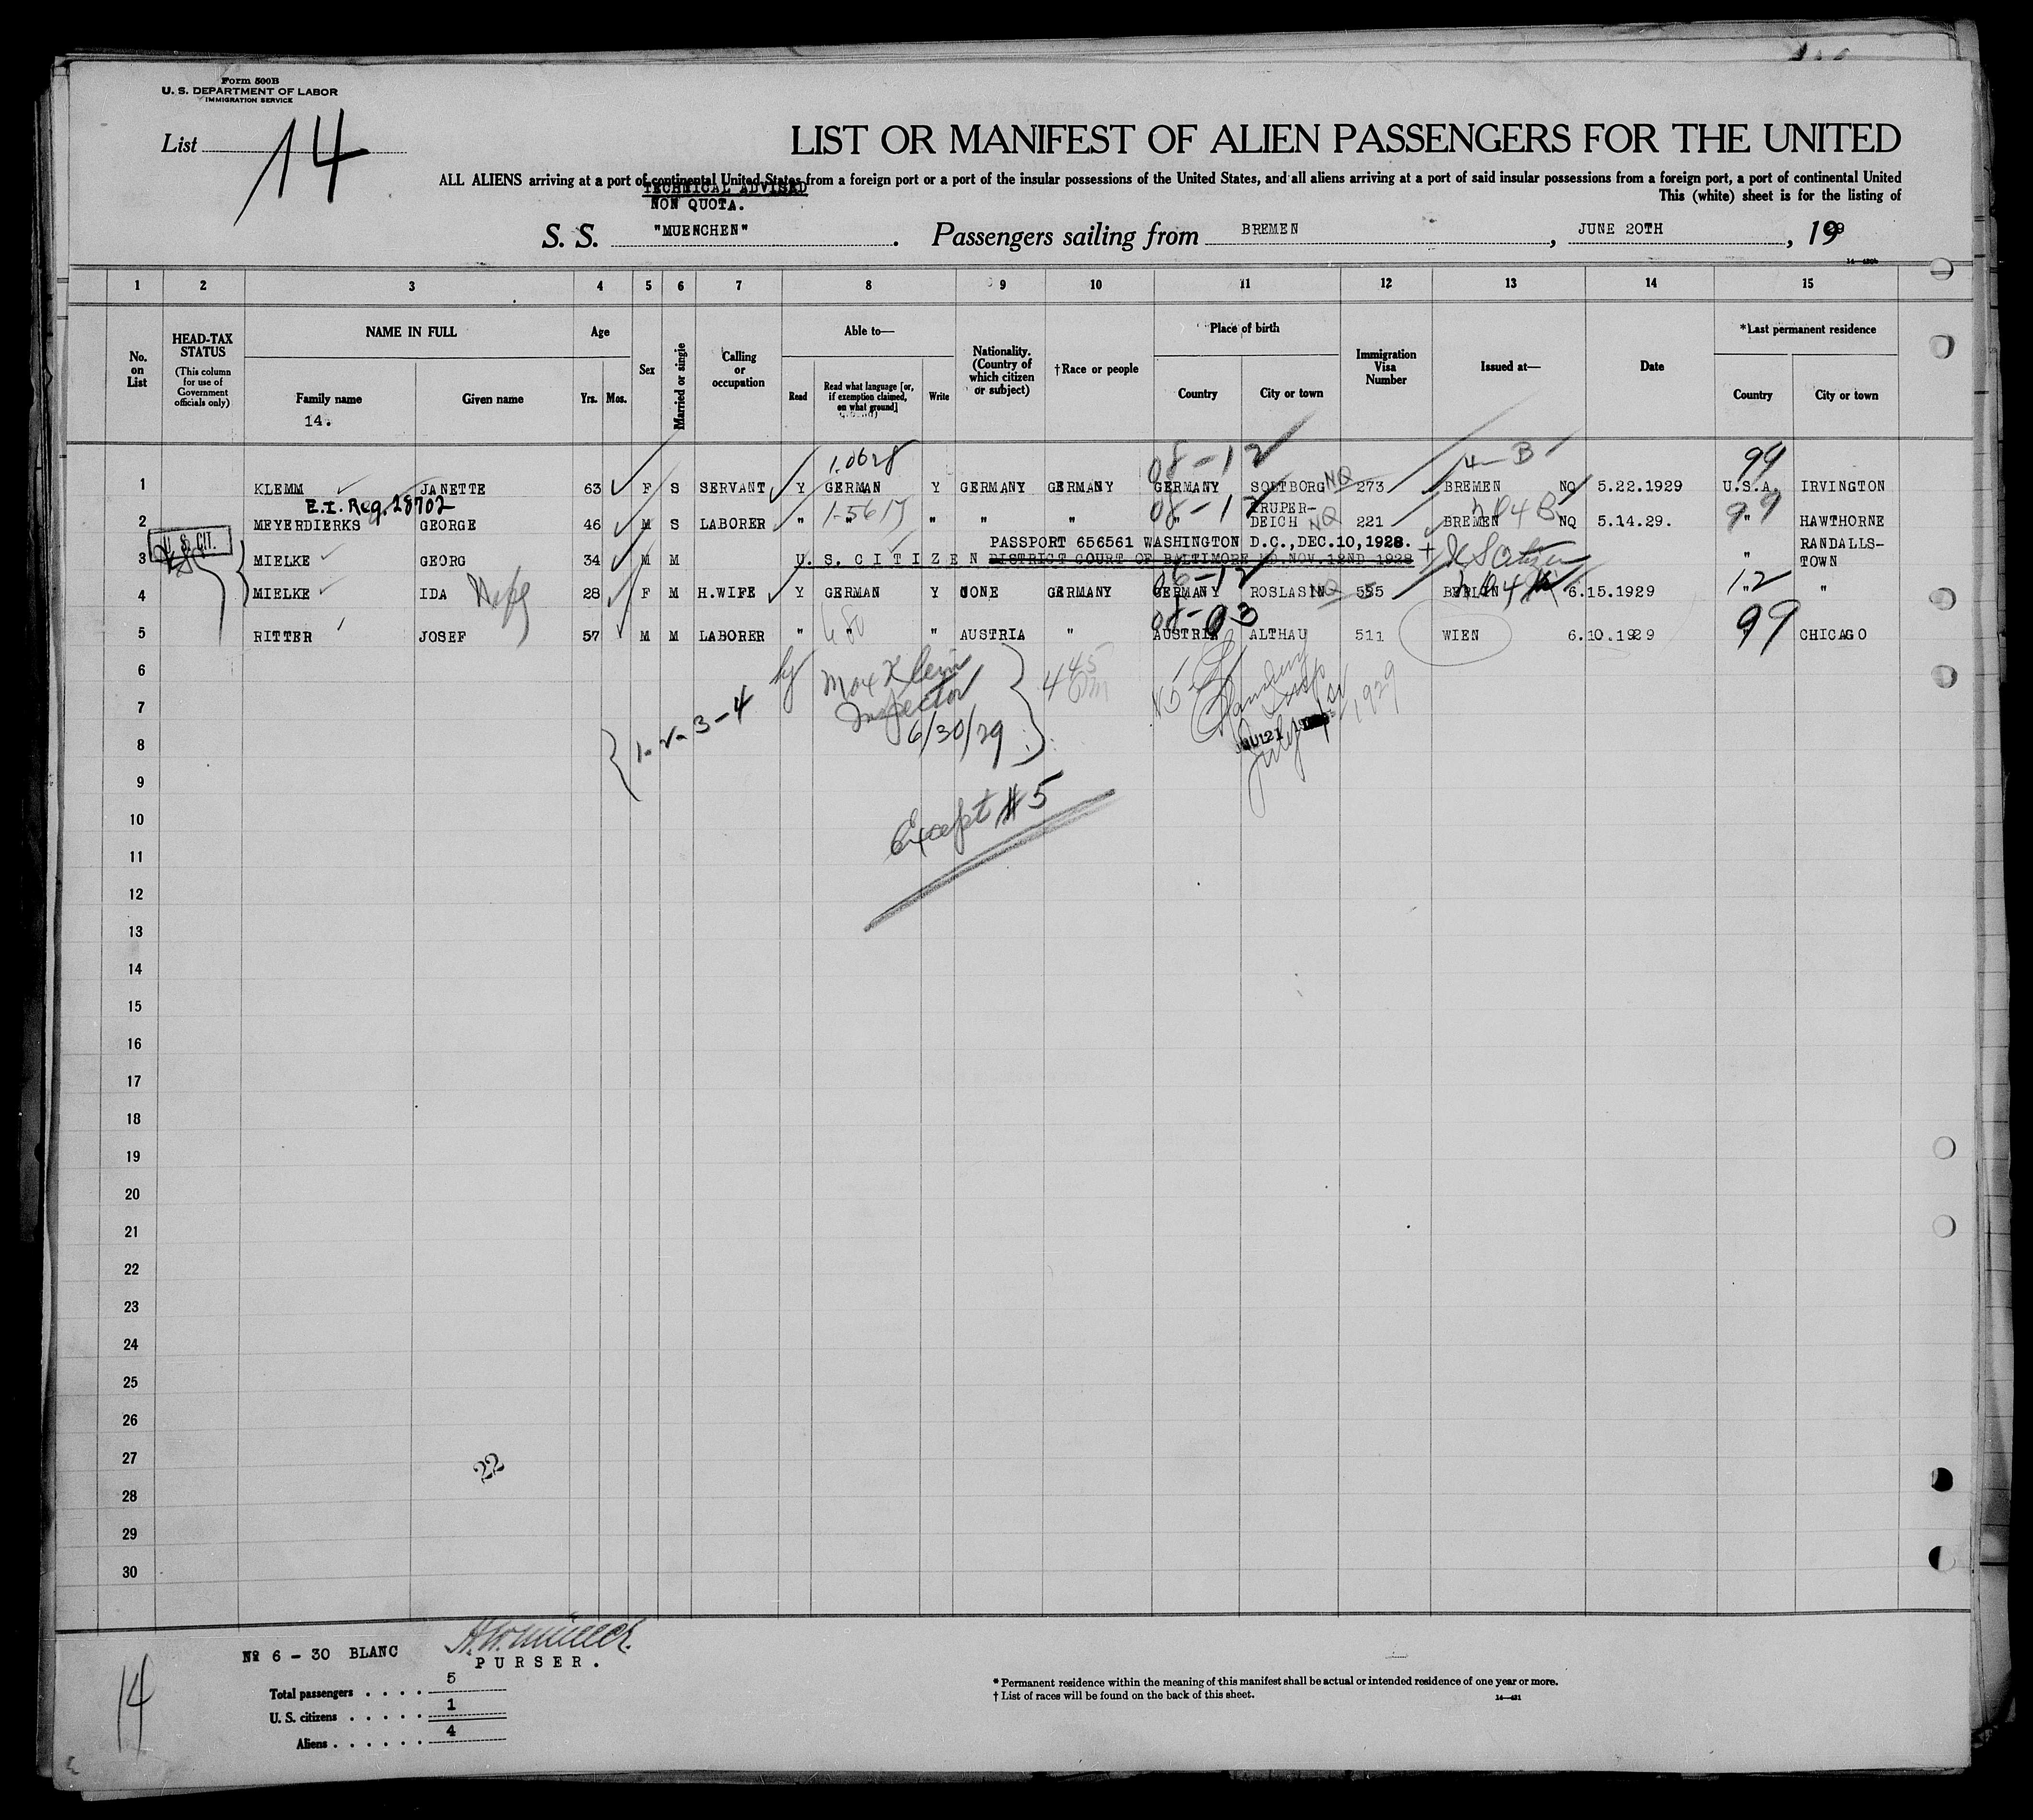 Form 500B
U. S. DEPARTMENT OF LABOR
IMMIGRATION SERVICE
List 14
LIST OR MANIFEST OF ALIEN PASSENGERS FOR THE UNITED
ALL ALIENS arriving at a port of continental United States from a foreign port or a port of the insular possessions of the United States, and all aliens arriving at a port of said insular possessions from a foreign port, a port of continental United
TECHNICAL ADVISED
This (white) sheet is for the listing of
NON QUOTA.
S. S. "MUENCHEN". Passengers sailing from BREMEN, JUNE 20TH, 1929
1 2 3 4 5 6 7 8 9 10 11 12 13 14 15
No. on List
HEAD-TAX STATUS
(This column for use of Government officials only)
NAME IN FULL
Family name
Given name
14.
Age
Yrs. Mos.
Sex
Married or single
Calling or occupation
Able to—
Read
Read what language [or, if exemption claimed, on what ground]
Write
Nationality. (Country of which citizen or subject)
†Race or people
Place of birth
Country
City or town
Immigration Visa Number
Issued at—
Date
*Last permanent residence
Country
City or town
08-12 4-B 99
1 KLEMM JANETTE 63 F S SERVANT Y GERMAN Y GERMANY GERMANY GERMANY SOLTBORG NQ 273 BREMEN NQ 5.22.1929 U.S.A. IRVINGTON
E.I. Req. 28702
08-12 99
2 MEYERDIERKS GEORGE 46 M S LABORER " " " " " " TRUPER-DEICH NQ 221 BREMEN NQ 5.14.29. " HAWTHORNE
U. S. CIT.
PASSPORT 656561 WASHINGTON D.C.,DEC.10,1928.
3 MIELKE GEORG 34 M M U. S. C I T I Z E N DISTRICT COURT OF BALTIMORE MD.NOV.12ND 1928 U S Citizen " RANDALLS-TOWN
12
4 MIELKE IDA Wife 28 F M H.WIFE Y GERMAN Y NONE GERMANY GERMANY ROSLASIN NQ 555 BERLIN 6.15.1929 " "
08-03 99
5 RITTER JOSEF 57 M M LABORER " " " AUSTRIA " AUSTRIA ALTHAU 511 WIEN 6.10.1929 " CHICAGO
6
by Max Klein
7
Inspector
1-2-3-4
8
6/30/29
July 1929
9
Except #5
10
11
12
13
14
15
16
17
18
19
20
21
22
23
24
25
26
27
22
28
29
30
Nº 6 - 30 BLANC
PURSER.
14
Total passengers . . . . 5
U. S. citizens . . . . . 1
Aliens . . . . . . 4
* Permanent residence within the meaning of this manifest shall be actual or intended residence of one year or more.
† List of races will be found on the back of this sheet.